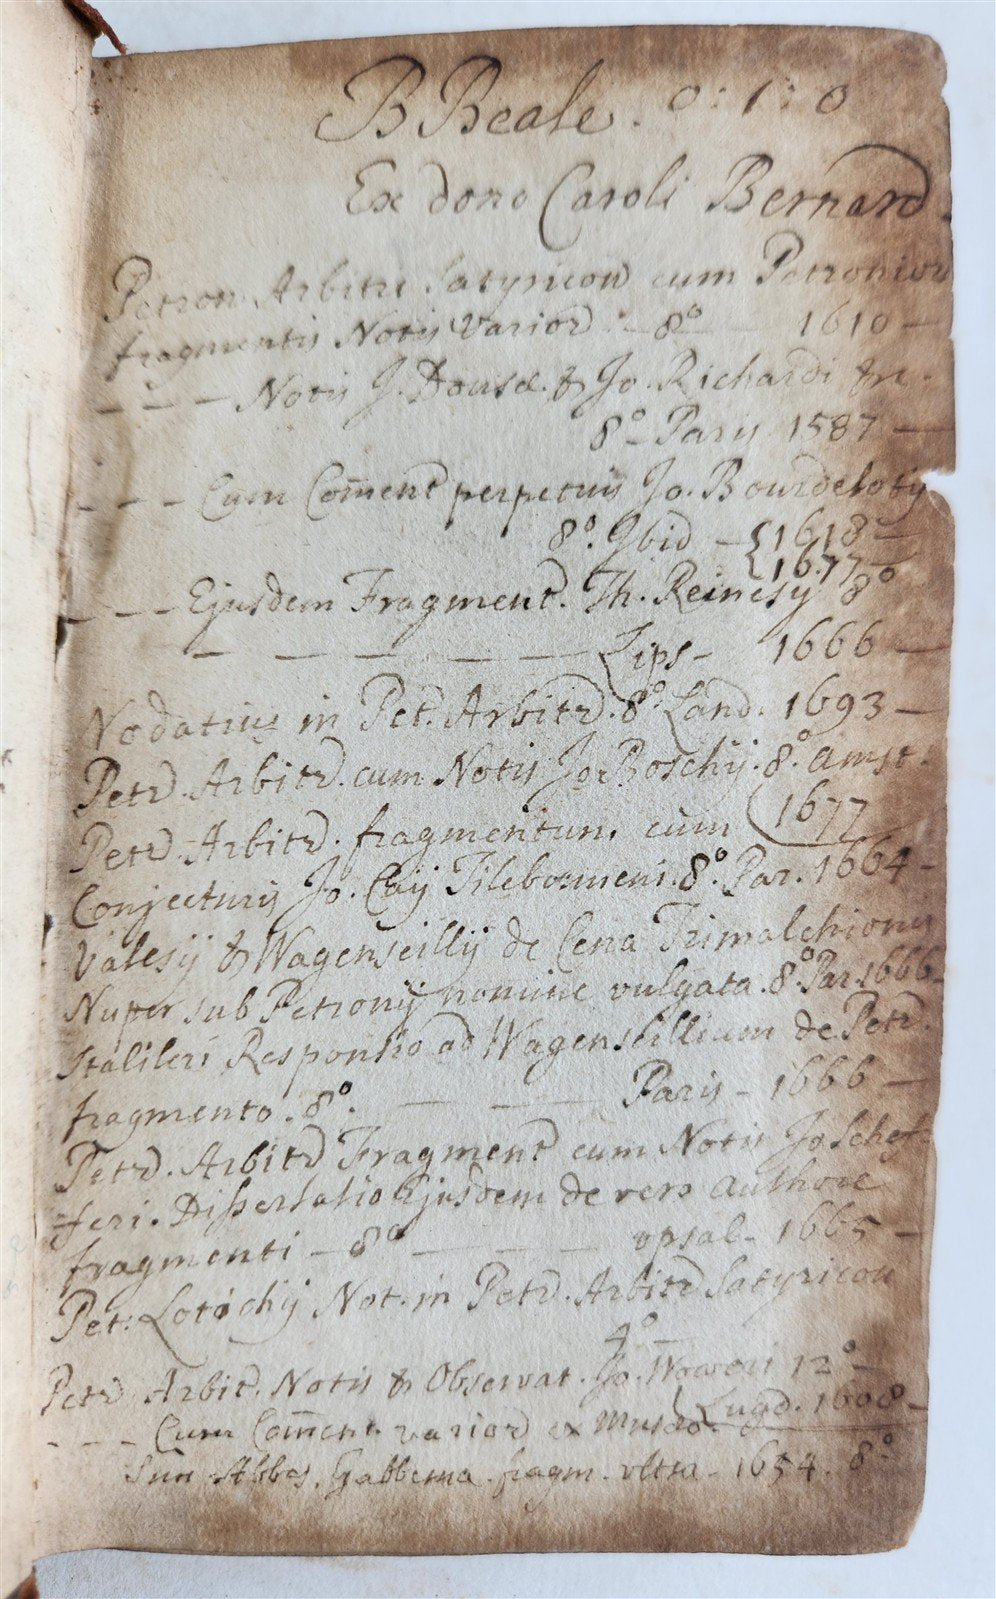 B Beale. 0 : 1 : 0
Ex dono Caroli Bernard
Petron. Arbitri Satyricon cum Petronior
fragmentis Notis Varior — 8º — 1610 —
— — — Notis J. Dousæ. & Jo. Richardi &c.
8º – Parij 1587 —
— — — Cum Com̄ent perpetuis Jo. Bourdelotij
8º. Ibid — { 1618 —
{ 1677 —
— — Ejusdem Fragment. Th. Reinesij 8º
— — — — — — Lips – 1666 —
Nodatius in Pet. Arbitr. 8º. Lond. 1693 —
Petr. Arbitr. cum Notis Jo Boschij. 8º. Amst.
Petr. Arbitr. fragmentum cum ( 1677
Conjecturis Jo. Caij Tilebomeni. 8º. Par. 1664 –
Valesij & Wagenseillij de Cena Trimalchionis
Nuper sub Petronij nomine vulgata. 8º. Par. 1666 –
Statileri Responsio ad Wagensillium de Petr.
fragmento. 8º. — — — Paris – 1666 —
Petr. Arbitr Fragment cum Notis Jo Schef=
=feri. Dissertatio Ejusdem de vero Authore
fragmenti — 8º — — — upsal – 1665 –
Pet. Lotichij Not. in Petr. Arbitr Satyricon
4º —
Petr Arbit. Notis & Observat. Jo. Woweri 12º —
— — — Cum Com̄ent. varior ex Musæo. ( Lugd. 1608 –
Abbas. Gabbema fragm. ultra – 1654. 8º